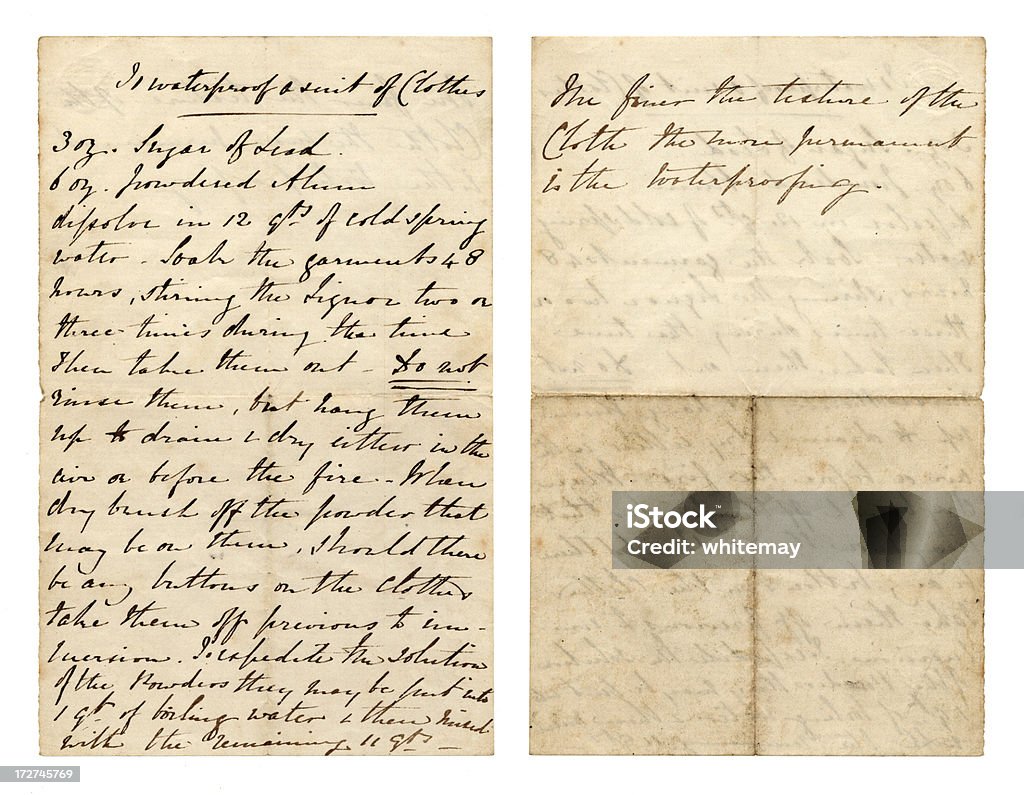 To waterproof a suit of Clothes
3 oz. Sugar of Lead.
6 oz. Powdered Alum
dissolve in 12 qts of cold spring
water - Soak the garments 48
hours, stirring the liquor two or
three times during the time
Then take them out - Do not
rinse them, but hang them
up to drain & dry either in the
air or before the fire - When
dry brush off the powder that
may be on them, should there
be any buttons on the Clothes
take them off previous to im-
mersion. To expedite the solution
of the Powders they may be put into
1 qt of boiling water & then mixed
with the remaining 11 qts -
The finer the texture of the
Cloth the more permanent
is the waterproofing.
iStock™
Credit: whitemay
172745769